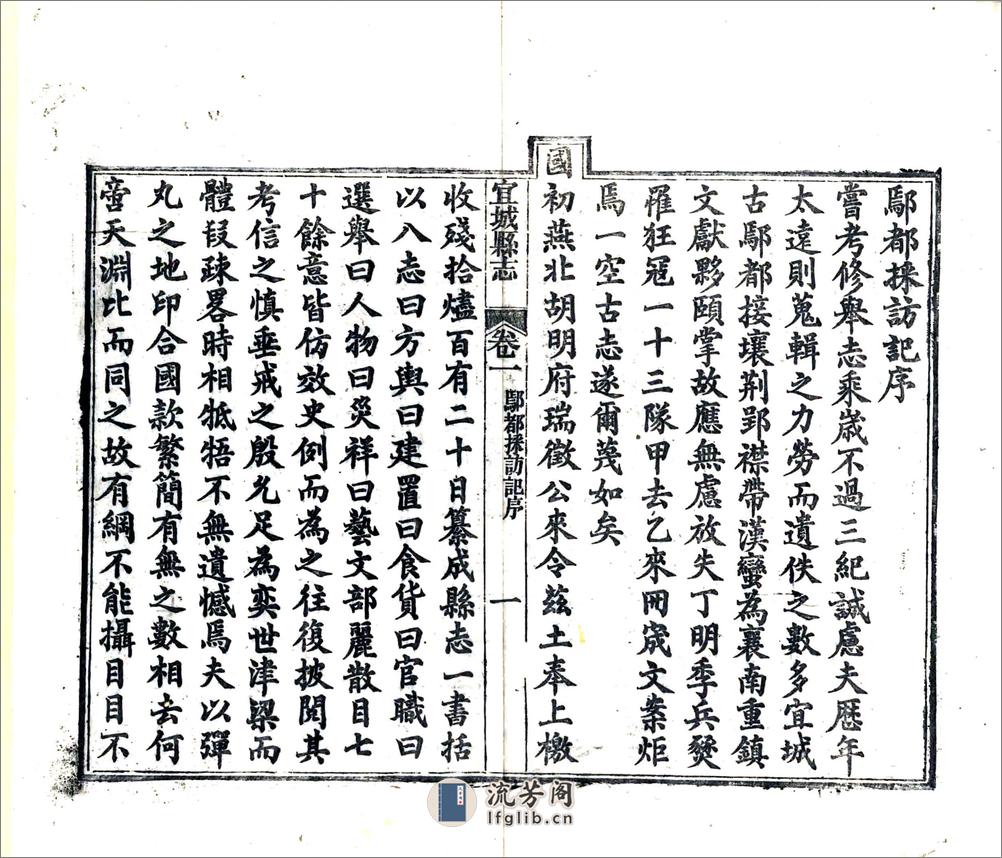 鄢都採訪記序
嘗考修舉志乘歲不過三紀誠慮夫歷年
太遠則蒐輯之力勞而遺佚之數多宜城
古鄢都接壤荆郢襟帶漢蠻為襄南重鎮
文獻夥頤掌故應無慮放失丁明季兵燹
罹狂冦一十三隊甲去乙來冊宬文案炬
焉一空古志遂爾蔑如矣
國
初燕北胡明府瑞徵公來令茲土奉上檄
宜城縣志
卷一
鄢都採訪記序
一
收殘拾燼百有二十日纂成縣志一書括
以八志曰方輿曰建置曰食貨曰官職曰
選舉曰人物曰災祥曰藝文部麗散目七
十餘意皆仿效史例而為之往復披閱其
考信之慎垂戒之殷允足為奕世津梁而
體段疎畧時相牴牾不無遺憾焉夫以彈
丸之地印合國款繁簡有無之數相去何
啻天淵比而同之故有綱不能攝目目不
流芳阁
lfglib.cn